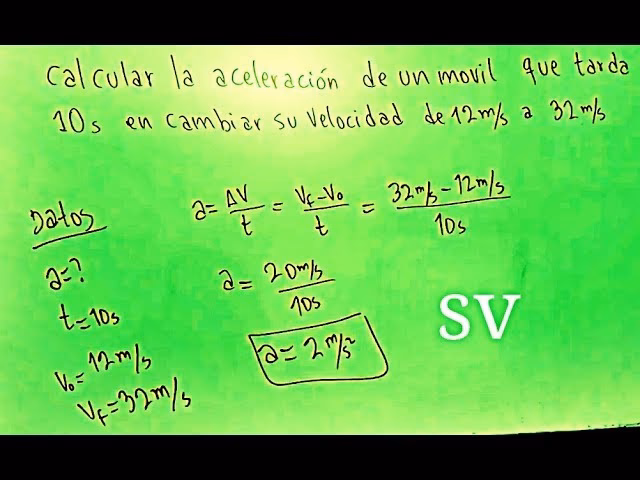 Calcular la aceleración de un movil que tarda
10s en cambiar su velocidad de 12m/s a 32m/s
Datos
a=?
t=10s
V₀=12m/s
V_f=32m/s
a=ΔV/t = V_f-V₀/t = 32m/s-12m/s/10s
a=20m/s/10s
a=2m/s²
SV